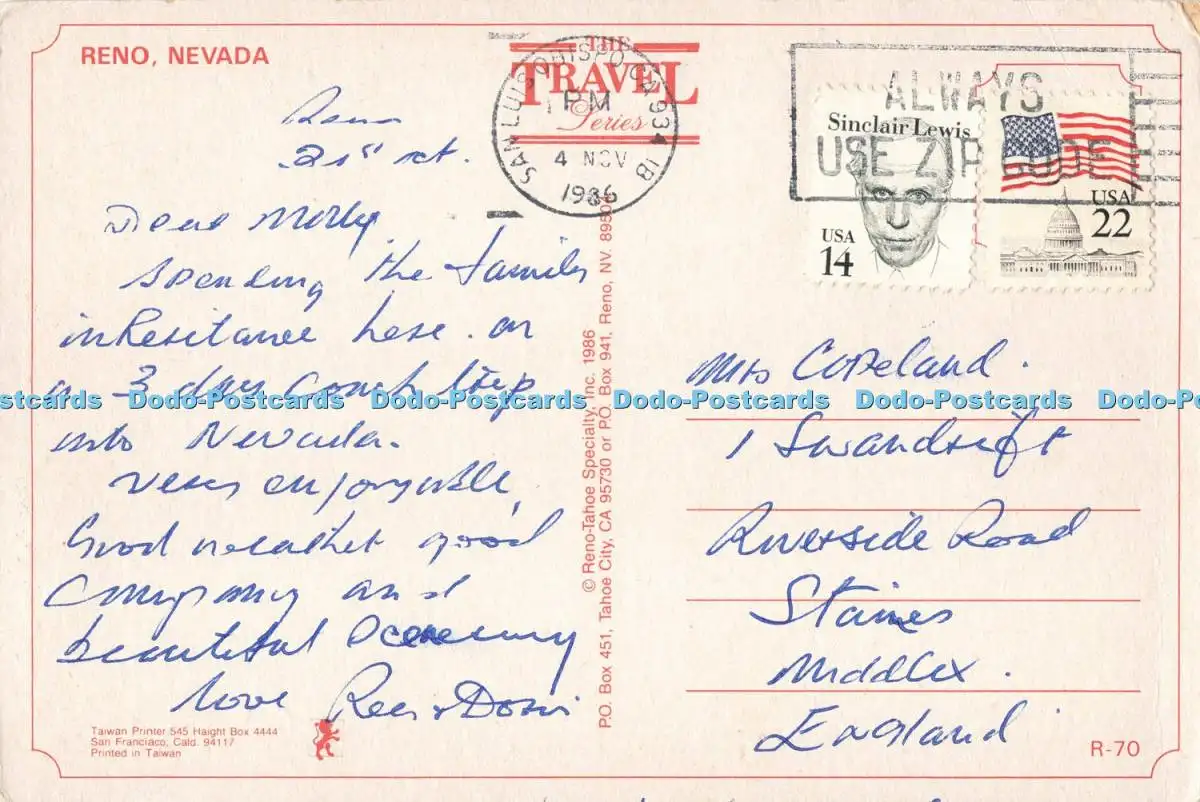 RENO, NEVADA
THE
TRAVEL
Series
SAN LUIS OBISPO CA 934
PM
4 NOV
1986
1B
ALWAYS
USE ZIP CODE
Sinclair Lewis
USA
14
USA
22
Reno
Dear Molly
spending the family
inheritance here. on
a 3 day coach trip
into Nevada.
very enjoyable
Good weather good
company and
beautiful scenery
love
Mrs Copeland.
1 Swandrift
Riverside Road
Staines
Middlex.
England
© Reno-Tahoe Specialty, Inc. 1986
P.O. Box 451, Tahoe City, CA 95730 or P.O. Box 941, Reno, NV. 8950
Taiwan Printer 545 Haight Box 4444
San Franciaco, Cald. 94117
Printed in Taiwan
R-70
Dodo-Postcards Dodo-Postcards Dodo-Postcards Dodo-Postcards